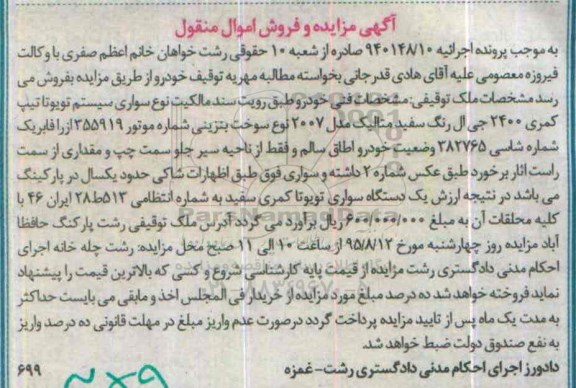 آگهی مزایده و فروش اموال منقول
به موجب پرونده اجرائیه ۹۴۰۱۴۸/۱۰ صادره از شعبه ۱۰ حقوقی رشت خواهان خانم اعظم صفری با وکالت
فیروزه معصومی علیه آقای هادی قدرجانی بخواسته مطالبه مهریه توقیف خودرو از طریق مزایده بفروش می
رسد مشخصات ملک توقیفی: مشخصات فنی خودرو طبق رویت سند مالکیت نوع سواری سیستم تویوتا تیپ
کمری ۲۴۰۰ جی ال رنگ سفید متالیک مدل ۲۰۰۷ نوع سوخت بنزینی شماره موتور ۳۵۵۹۱۹ ازرا فابریک
شماره شاسی ۳۸۲۷۶۵ وضعیت خودرو اطاق سالم و فقط از ناحیه سپر جلو سمت چپ و مقداری از سمت
راست اثار برخورد طبق عکس شماره ۲ داشته و سواری فوق طبق اظهارات شاکی حدود یکسال در پارکینگ
می باشد در نتیجه ارزش یک دستگاه سواری تویوتا کمری سفید به شماره انتظامی ۵۱۳ط۲۸ ایران ۴۶ با
کلیه محلقات آن به مبلغ ۶۰۰/۰۰۰/۰۰۰ ریال برآورد می گردد آدرس ملک توقیفی رشت پارکنگ حافظا
آباد مزایده روز چهارشنبه مورخ ۹۵/۸/۱۲ از ساعت ۱۰ الی ۱۱ صبح محل مزایده: رشت چله خانه اجرای
احکام مدنی دادگستری رشت مزایده از قیمت پایه کارشناسی شروع و کسی که بالاترین قیمت را پیشنهاد
نماید فروخته خواهد شد ده درصد مبلغ مورد مزایده از خریدار فی المجلس اخذ و مابقی می بایست حداکثر
به مدت یک ماه پس از تایید مزایده پرداخت گردد درصورت عدم واریز مبلغ در مهلت قانونی ده درصد واریز
به نفع صندوق دولت ضبط خواهد شد.
دادورز اجرای احکام مدنی دادگستری رشت-غمزه
۶۹۹